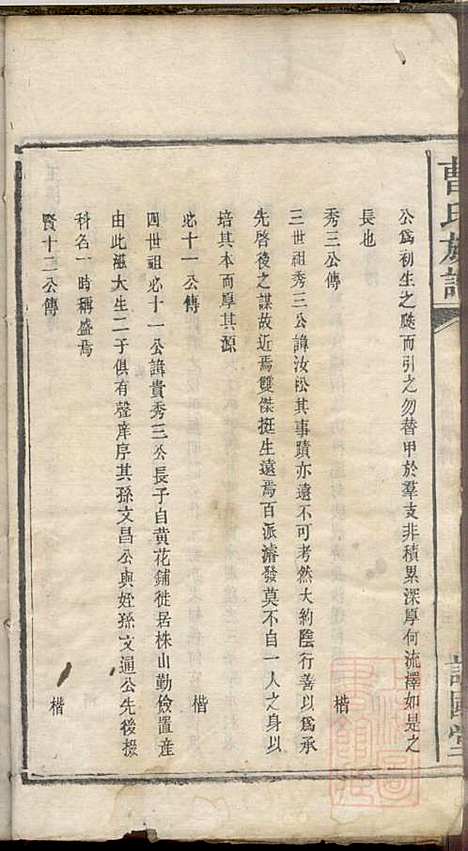 曹氏族譜
公爲初生之瓞而引之勿替甲於羣支非積累深厚何流澤如是之
長也
秀三公傳　楷
三世祖秀三公諱汝松其事蹟亦遠不可考然大約陰行善以爲承
先啓後之謀故近焉雙傑挺生遠焉百派濬發莫不自一人之身以
培其本而厚其源
必十一公傳　楷
四世祖必十一公諱貴秀三公長子自黄花鋪徙居株山勤儉置産
由此滋大生二子俱有聲庠序其孫文昌公與姪孫文通公先後掇
科名一時稱盛焉
賢十二公傳　楷